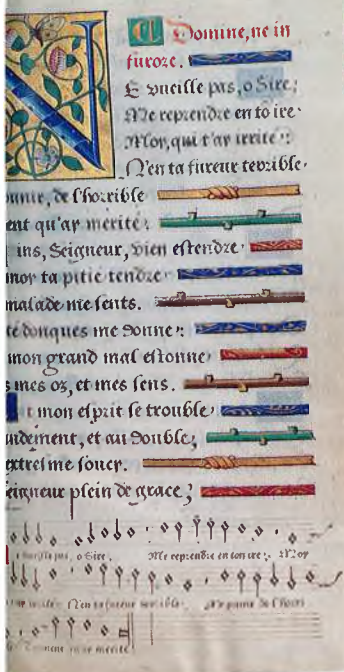 Domine, ne in
furore.
E vueille pas, o Sire,
Me reprendre en tō ire
Moy, qui t'ay irrité:
N'en ta fureur terrible
punir, de l'horrible
ent qu'ay mérité.
ins, Seigneur, vien estendre
moy ta pitié tendre
malade me sents.
té donques me donne:
mon grand mal estonne
s mes oz, et mes sens.
t mon esprit se trouble
andement, et au double,
extresme soucy.
eigneur plein de grace,
pas, o Sire, Me reprendre en ton ire: Moy
ay irrité: N'en ta fureur terrible. Me punir de l'horri
Tourment qu'ay mérité